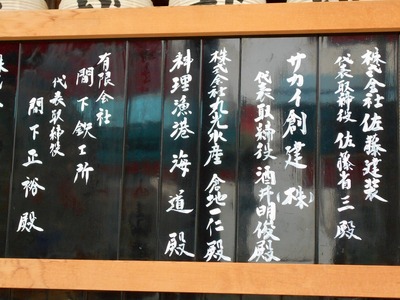 株式会社佐藤建装
代表取締役 佐藤省三殿
サカイ創建(株)
代表取締役酒井明俊殿
株式会社丸光水産 倉地一仁殿
料理漁港 海道殿
有限会社
間下鉄工所
代表取締役
間下正裕殿